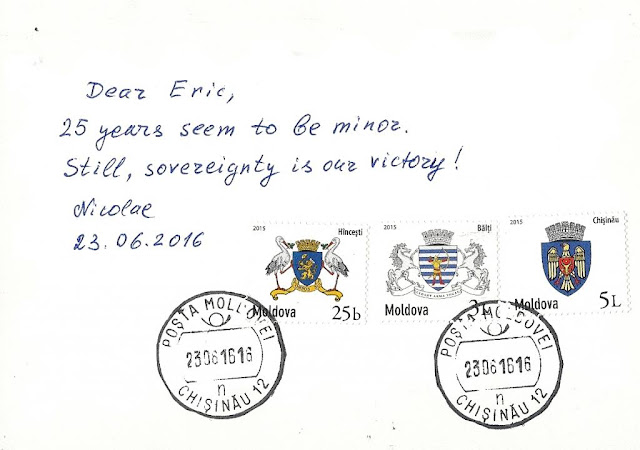 Dear Eric,
25 years seem to be minor.
Still, sovereignty is our victory!
Nicolae
23.06.2016
2015 Hîncești
Moldova 25b
2015 Bălți
Moldova
2015 Chișinău
Moldova 5L
POȘTA MOLDOVEI
23061616
n
CHIȘINĂU 12
POȘTA MOLDOVEI
23061616
n
CHIȘINĂU 12